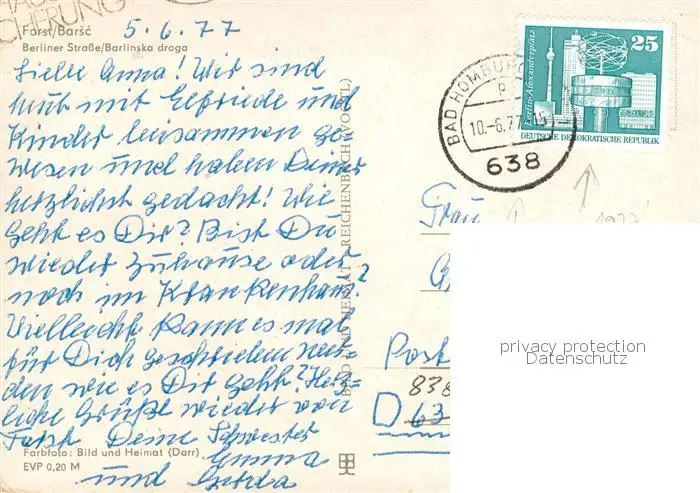 CHERUNG
Forst/Baršć
5.6.77
Berliner Straße/Barlinska droga
Liebe Anna! Wir sind
heut mit Elfriede und
Kinder beisammen ge-
wesen und haben Deiner
herzlichst gedacht! Wie
geht es Dir? Bist Du
wieder zuhause oder
noch im Krankenhaus?
Vielleicht kann es mal
für Dich geschrieben wer-
den wie es Dir geht? Herz-
liche Grüße wieder von
Forst Deine Schwester
Emma
und Gerda
Farbfoto: Bild und Heimat (Darr)
EVP 0,20 M
BILD UND HEIMAT REICHENBACH (VOGTL)
25
Berlin-Alexanderplatz
DEUTSCHE DEMOKRATISCHE REPUBLIK
BAD HOMBU
10.-6.77
638
1977
Frau
Post
838
D 63
privacy protection
Datenschutz